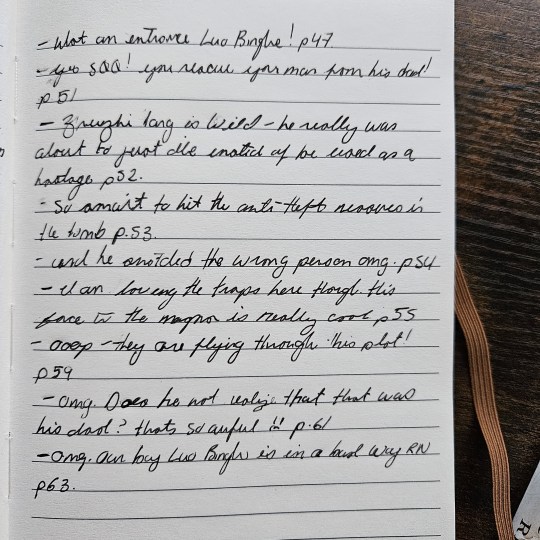 - What an entrance Luo Binghe! p47.
- yes SQQ! you rescue your man from his dad!
p51
- Zhuzhi lang is wild - he really was
about to just die instead of be used as a
hostage p52.
- So smart to hit the anti-theft measures in
the tomb p.53.
- and he snatched the wrong person omg. p54
- I am loving the traps here though. this
face to the magma is really cool p55
- ooop - they are flying through this plot!
p59
- omg. Does he not realize that that was
his dad? thats so awful p.61
- omg. Our boy Luo Binghe is in a bad way RN
p63.
R